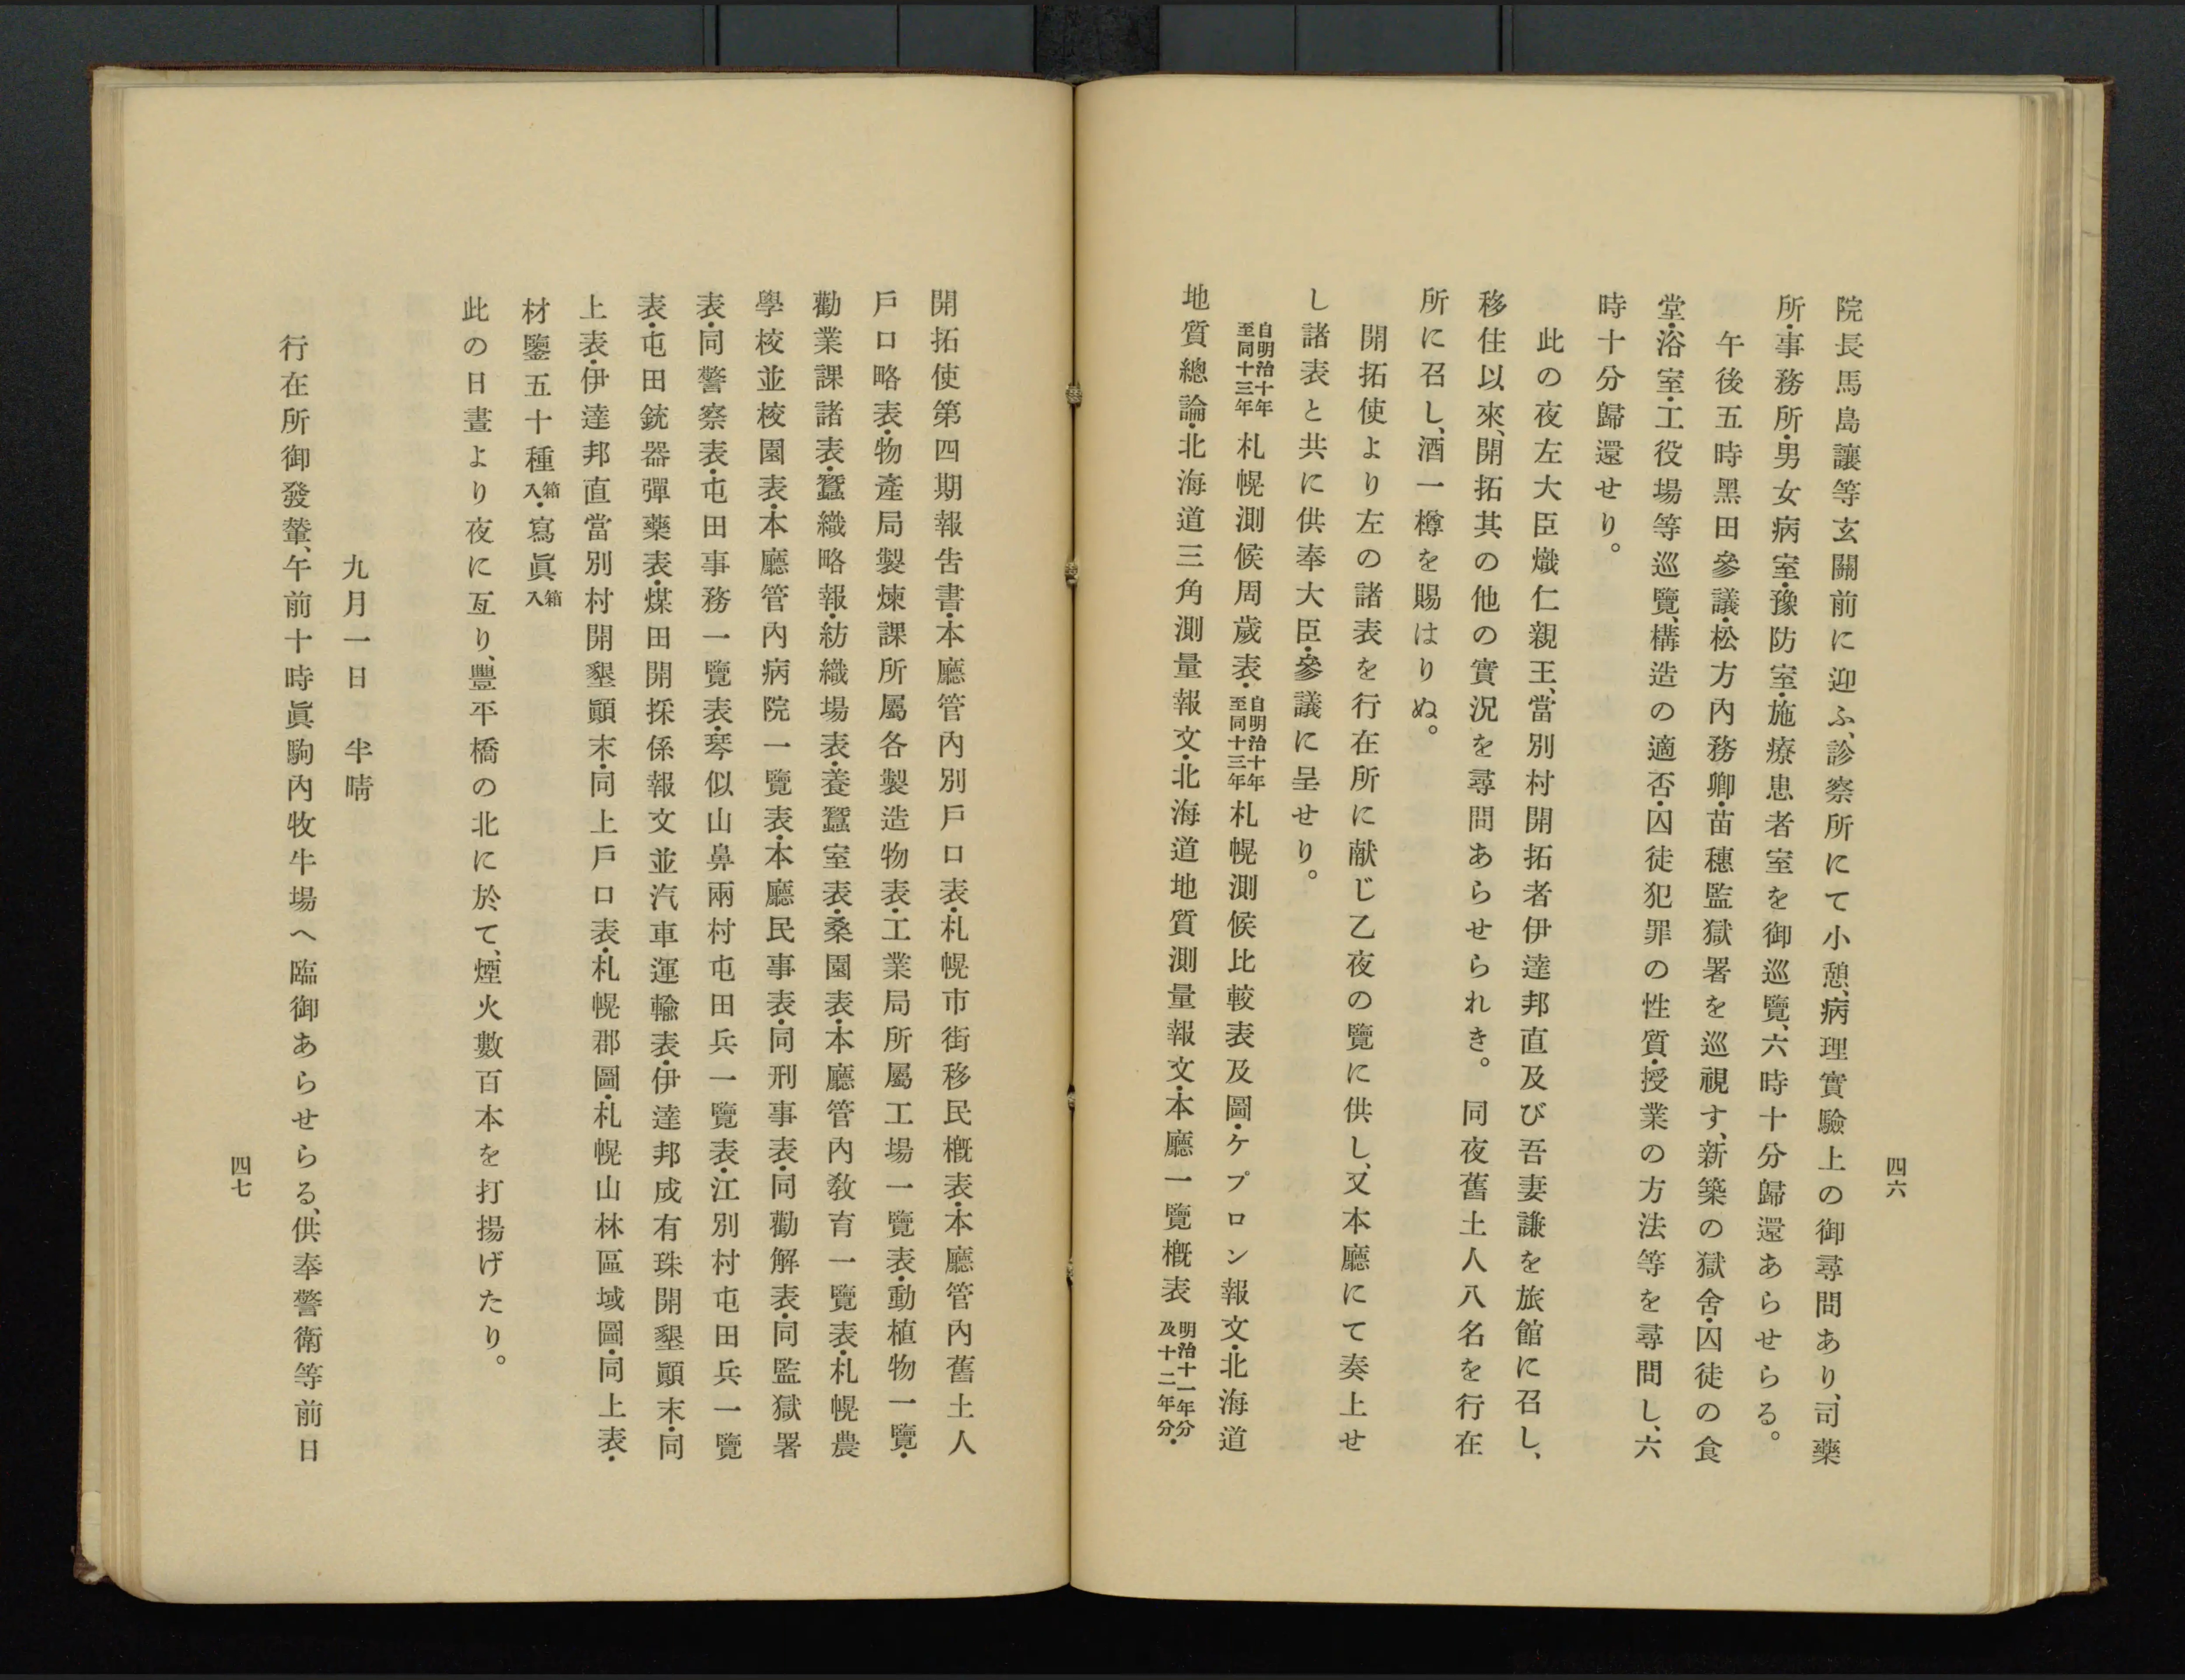 四六
院長馬島讓等玄關前に迎ふ、診察所にて小憩、病理實驗上の御尋問あり、司藥
所・事務所・男女病室・豫防室・施療患者室を御巡覽、六時十分歸還あらせらる。
午後五時黑田參議・松方內務卿・苗穗監獄署を巡視す、新築の獄舍・囚徒の食
堂・浴室・工役場等巡覽、構造の適否・囚徒犯罪の性質・授業の方法等を尋問し、六
時十分歸還せり。
此の夜左大臣熾仁親王、當別村開拓者伊達邦直及び吾妻謙を旅館に召し、
移住以來、開拓其の他の實況を尋問あらせられき。同夜舊土人八名を行在
所に召し、酒一樽を賜はりぬ。
開拓使より左の諸表を行在所に献じ乙夜の覽に供し、又本廳にて奏上せ
し諸表と共に供奉大臣・參議に呈せり。
自明治十年至同十三年札幌測候周歲表・自明治十年至同十三年札幌測候比較表及圖・ケプロン報文・北海道
地質總論・北海道三角測量報文・北海道地質測量報文・本廳一覽槪表明治十一年分及十二年分・
開拓使第四期報告書・本廳管內別戶口表・札幌市街移民槪表・本廳管內舊土人
戶口略表・物產局製煉課所屬各製造物表・工業局所屬工場一覽表・動植物一覽・
勸業課諸表・蠶織略報・紡織場表・養蠶室表・桑園表・本廳管內敎育一覽表・札幌農
學校並校園表・本廳管內病院一覽表・本廳民事表・同刑事表・同勸解表・同監獄署
表・同警察表・屯田事務一覽表・琴似山鼻兩村屯田兵一覽表・江別村屯田兵一覽
表・屯田銃器彈藥表・煤田開採係報文並汽車運輸表・伊達邦成有珠開墾顚末・同
上表・伊達邦直當別村開墾顚末・同上戶口表・札幌郡圖・札幌山林區域圖・同上表・
材鑒五十種箱入・寫眞箱入
此の日晝より夜に亙り、豐平橋の北に於て、煙火數百本を打揚げたり。
九月一日　半晴
行在所御發輦、午前十時眞駒內牧牛場へ臨御あらせらる、供奉警衛等前日
四七